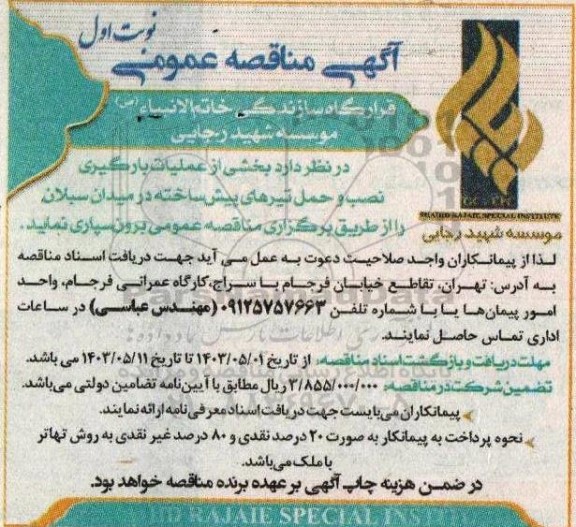 نوبت اول
آگهی مناقصه عمومی
قرارگاه سازندگی خاتم الانبیاء (ص)
موسسه شهید رجایی
در نظر دارد بخشی از عملیات بارگیری
نصب و حمل تیرهای پیش ساخته در میدان سبلان
را از طریق برگزاری مناقصه عمومی برون سپاری نماید.
SHAHID RAJAIE SPECIAL INSTITUTE
موسسه شهید رجایی
لذا از پیمانکاران واجد صلاحیت دعوت به عمل می آید جهت دریافت اسناد مناقصه
به آدرس: تهران، تقاطع خیابان فرجام با سراج، کارگاه عمرانی فرجام، واحد
امور پیمان‌ها یا با شماره تلفن ۰۹۱۲۵۷۵۷۶۶۳ (مهندس عباسی) در ساعات
اداری تماس حاصل نمایند.
مهلت دریافت و بازگشت اسناد مناقصه: از تاریخ ۱۴۰۳/۰۵/۰۱ تا تاریخ ۱۴۰۳/۰۵/۱۱ می باشد.
تضمین شرکت در مناقصه: ۳/۸۵۵/۰۰۰/۰۰۰ ریال مطابق با آیین‌نامه تضامین دولتی می‌باشد.
پیمانکاران می‌بایست جهت دریافت اسناد معرفی نامه ارائه نمایند.
نحوه پرداخت به پیمانکار به صورت ۲۰ درصد نقدی و ۸۰ درصد غیر نقدی به روش تهاتر
با ملک می‌باشد.
در ضمن هزینه چاپ آگهی بر عهده برنده مناقصه خواهد بود.
RAJAIE SPECIAL INST